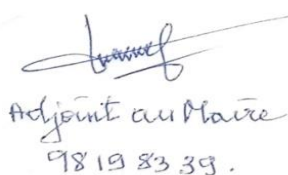 Adjoint au Maire
98 19 83 39.